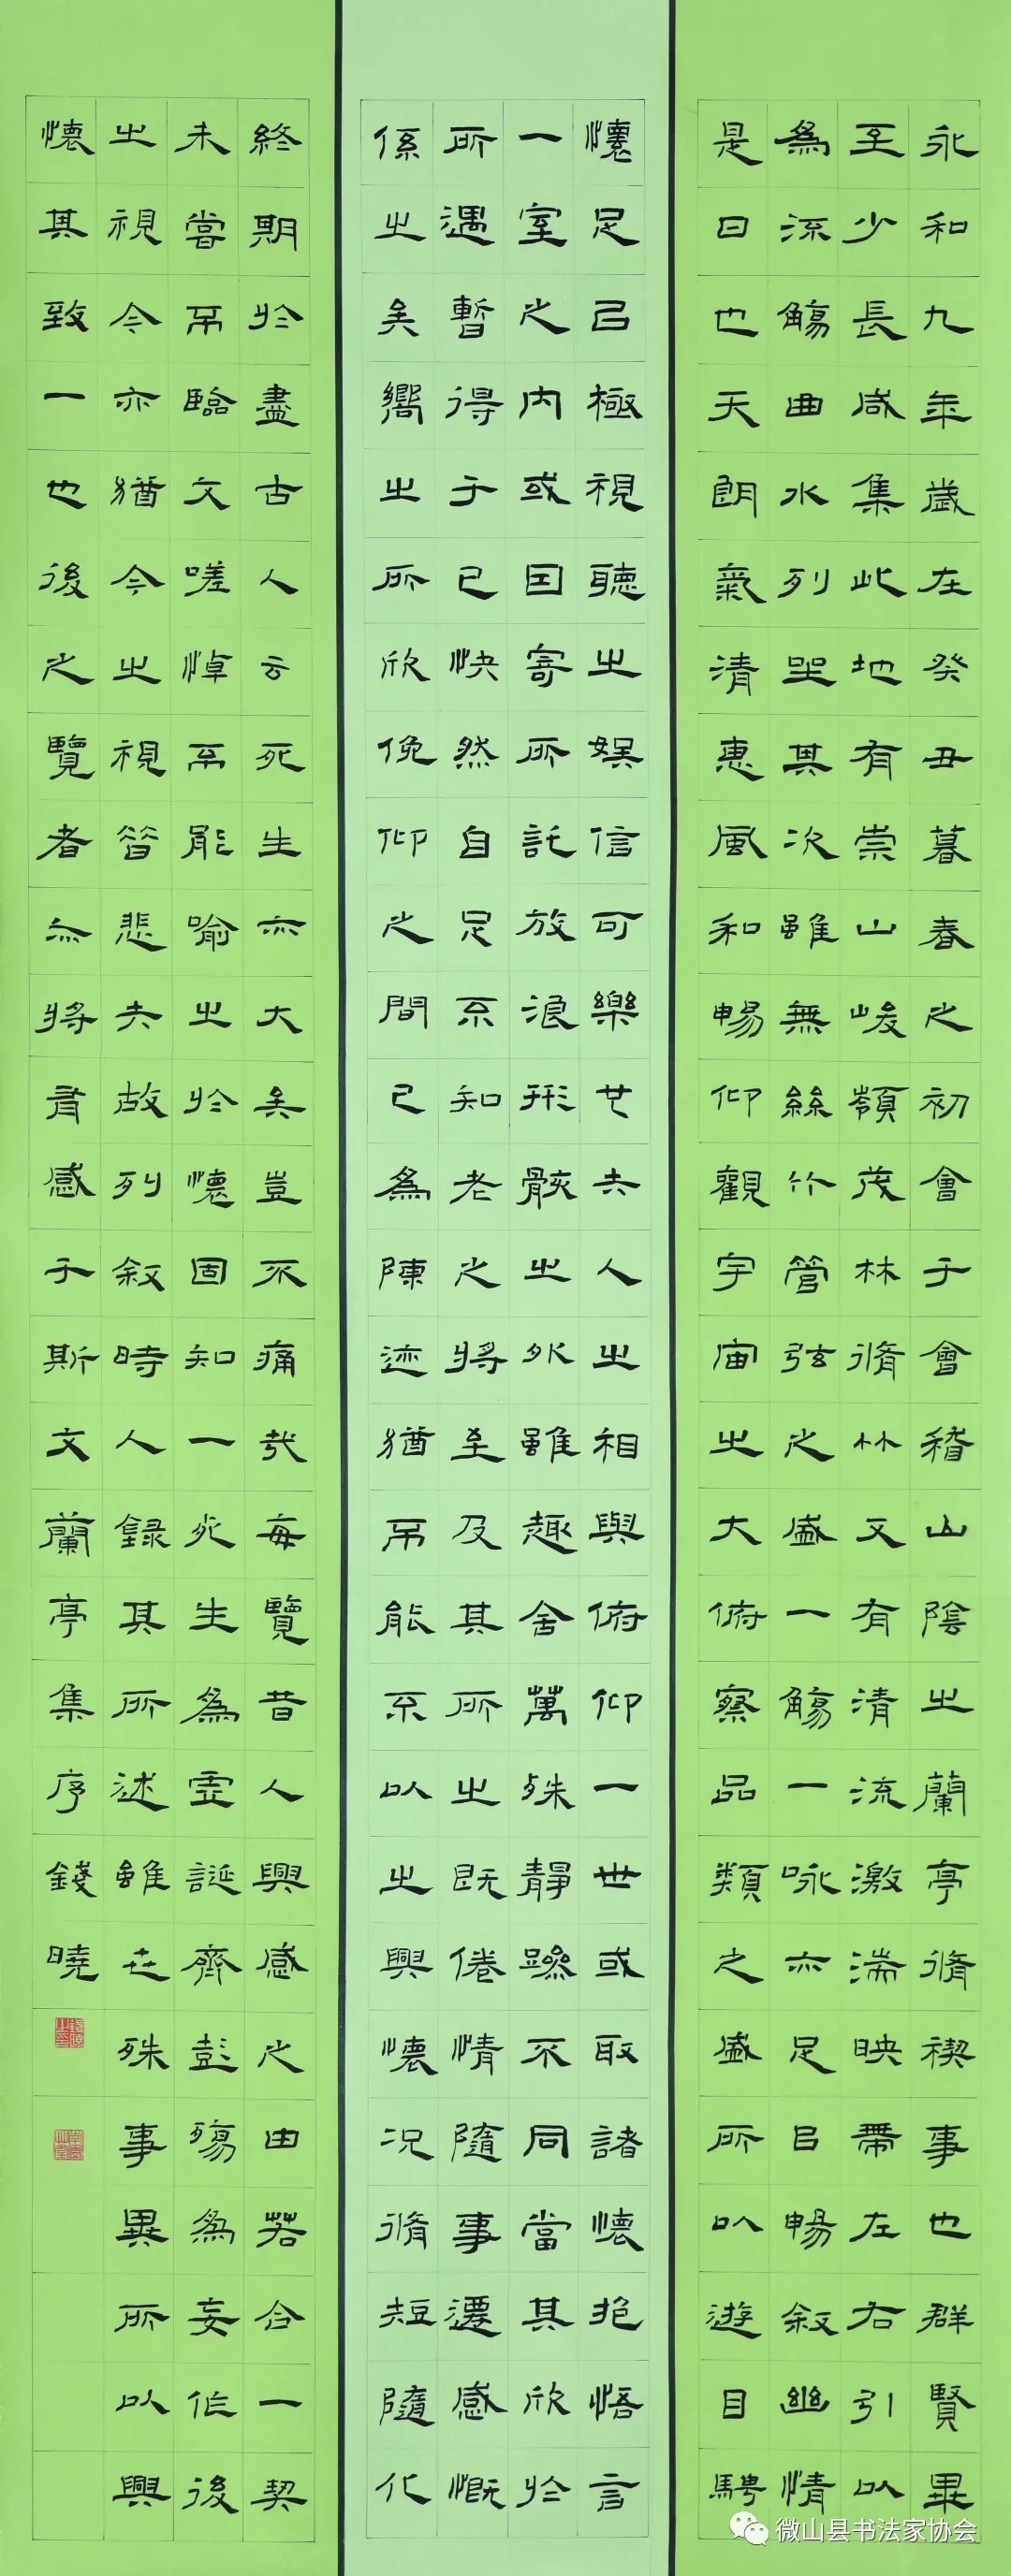 永和九年歲在癸丑暮春之初會于會稽山陰之蘭亭脩禊事也群賢畢
至少長咸集此地有崇山峻嶺茂林脩竹又有清流激湍映帶左右引以
為流觴曲水列坐其次雖無絲竹管弦之盛一觴一咏亦足以暢敘幽情
是日也天朗氣清惠風和暢仰觀宇宙之大俯察品類之盛所以遊目騁
懷足以極視聽之娛信可樂也夫人之相與俯仰一世或取諸懷抱悟言
一室之內或因寄所託放浪形骸之外雖趣舍萬殊靜躁不同當其欣於
所遇暫得于己快然自足不知老之將至及其所之既倦情隨事遷感慨
係之矣嚮之所欣俛仰之間已為陳迹猶不能不以之興懷況脩短隨化
終期於盡古人云死生亦大矣豈不痛哉每覽昔人興感之由若合一契
未嘗不臨文嗟悼不能喻之於懷固知一死生為虛誕齊彭殤為妄作後
之視今亦猶今之視昔悲夫故列敘時人錄其所述雖世殊事異所以興
懷其致一也後之覽者亦將有感于斯文蘭亭集序錢曉
微山县书法家协会